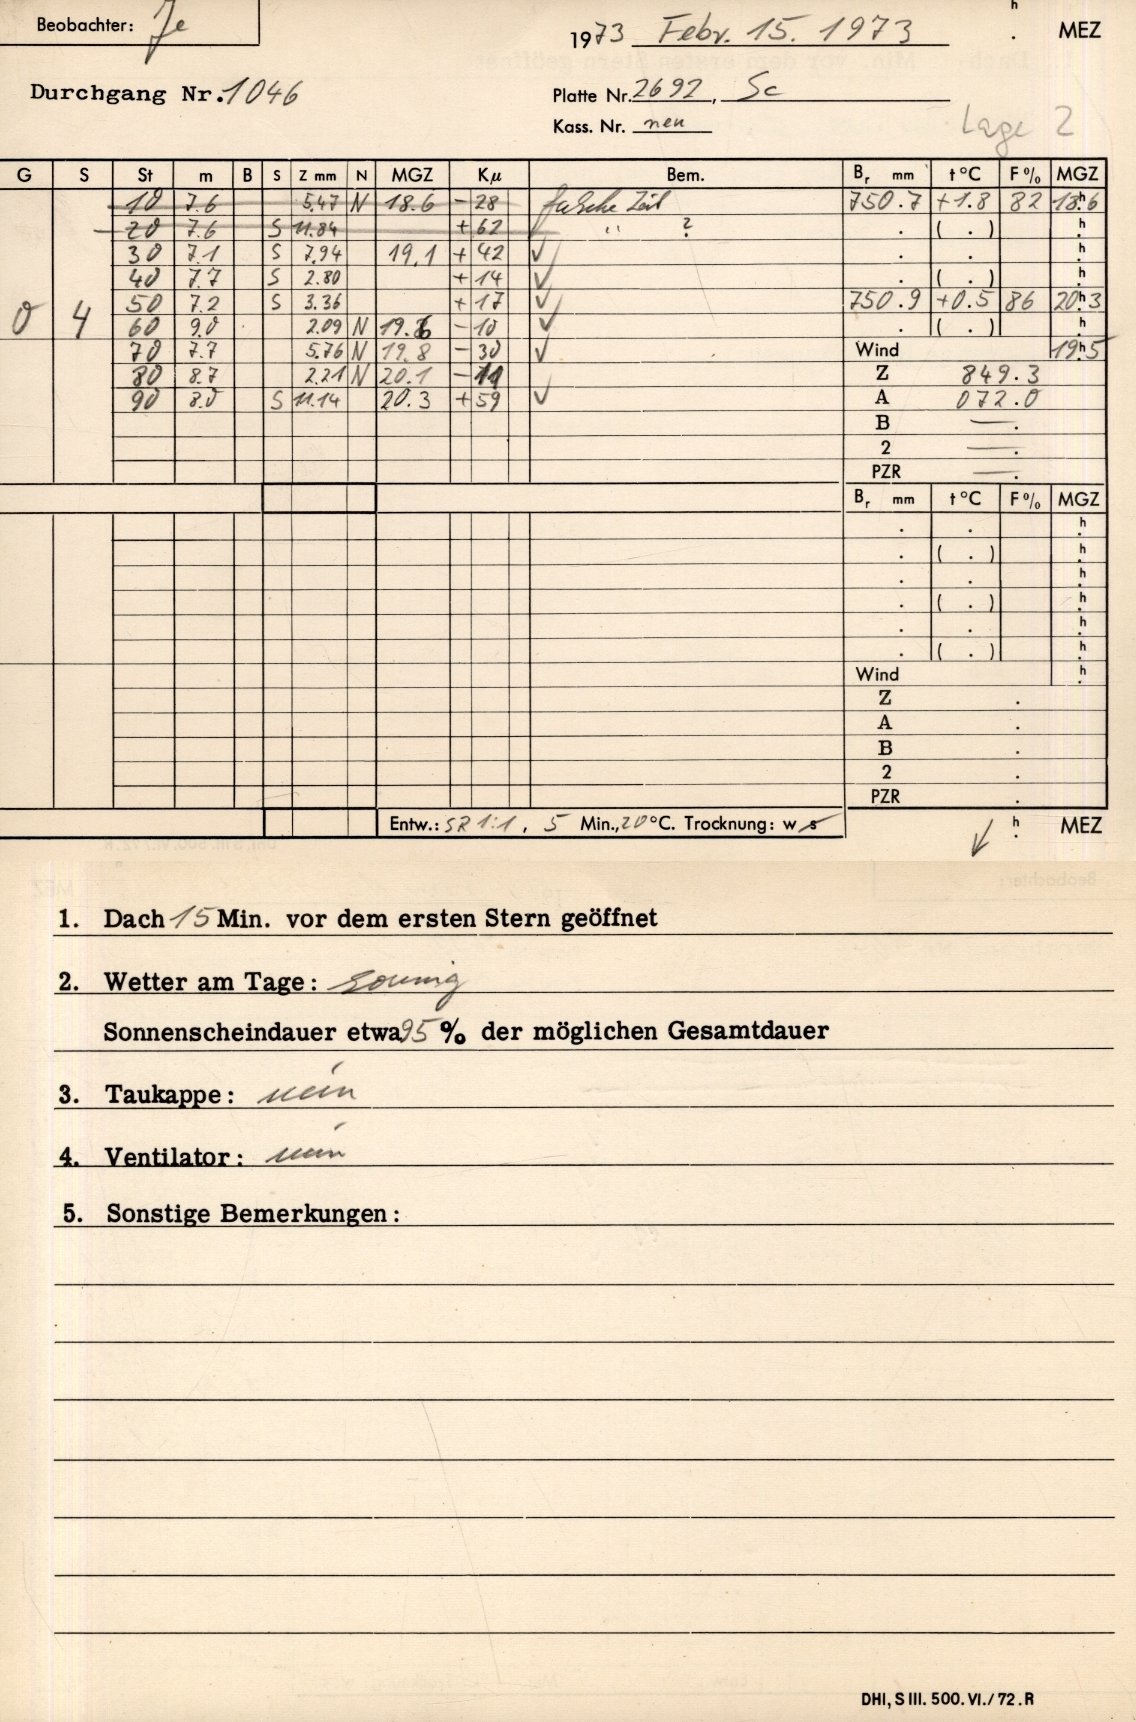 Beobachter: Je
1973 Febr. 15. 1973 h . MEZ
Durchgang Nr. 1046
Platte Nr. 2692, Sc
Kass. Nr. neu
Lage 2
G S St m B S Z mm N MGZ Kµ Bem. Br mm t °C F % MGZ
10 7.6 5.47 N 18.6 - 28 falsche Zeit 750.7 +1.8 82 18h6
20 7.6 S 11.84 + 62 " ? . ( . ) h
30 7.1 S 7.94 19.1 + 42 ✓ . . h
40 7.7 S 2.80 + 14 ✓ . ( . ) h
0 4 50 7.2 S 3.36 + 17 ✓ 750.9 +0.5 86 20h3
60 9.0 2.09 N 19.6 - 10 ✓ . ( . ) h
70 7.7 5.76 N 19.8 - 30 ✓ Wind 19h5
80 8.7 2.21 N 20.1 - 11 Z 849.3
90 8.0 S 11.14 20.3 + 59 ✓ A 072.0
B — .
2 — .
PZR — .
Br mm t °C F % MGZ
. . h
. ( . ) h
. . h
. ( . ) h
. . h
. ( . ) h
Wind h
Z .
A .
B .
2 .
PZR .
Entw.: SR 1:1, 5 Min., 20 °C. Trocknung: w s h . MEZ
1. Dach 15 Min. vor dem ersten Stern geöffnet
2. Wetter am Tage: sonnig
Sonnenscheindauer etwa 95 % der möglichen Gesamtdauer
3. Taukappe: nein
4. Ventilator: nein
5. Sonstige Bemerkungen:
DHI, S III. 500. VI. / 72 . R